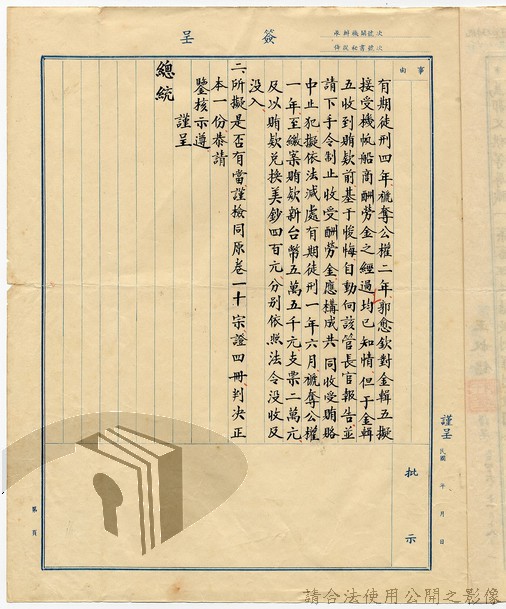 簽呈
承辦機關號次
由事
有期徒刑四年褫奪公權二年郭愈欽對金輯五擬
接受機帆船商酬勞金之經過均已知情但于金輯
五收到賄款前基于悛悔自動向該管長官報告並
請下手令制止收受酬勞金應構成共同收受賄賂
中止犯擬依法減處有期徒刑一年六月褫奪公權
一年至繳案賄款新台幣五萬五千元支票二萬元
及以賄款兌換美鈔四百元分別依照法令沒收及
沒入
二、所擬是否有當謹檢同原卷一十宗證四冊判決正
本一份恭請
鑒核示遵
謹呈
總統
批示
謹呈
民國 年 月 日
第 頁
請合法使用公開之影像